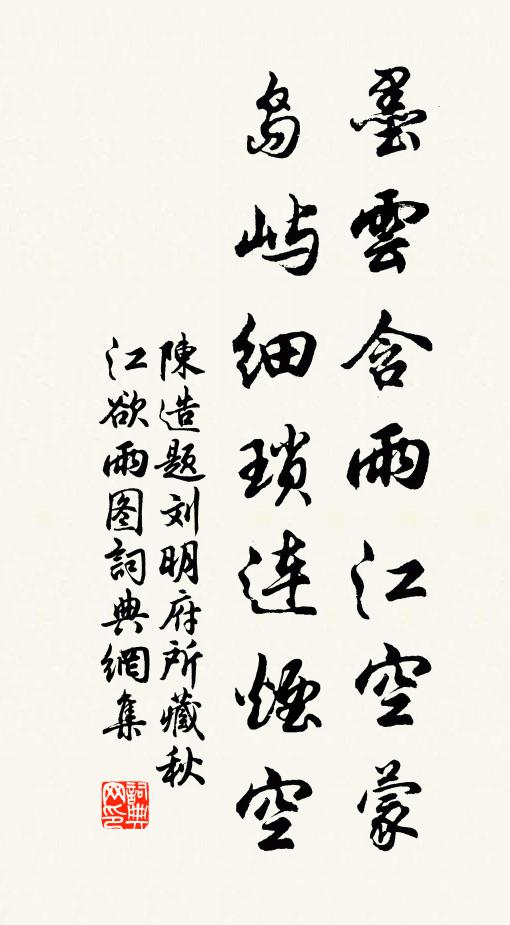 墨雲含雨江空蒙
島嶼细瑣連煙空
陳造题刘明府所藏秋
江欲雨图詞典網集
詞典网印